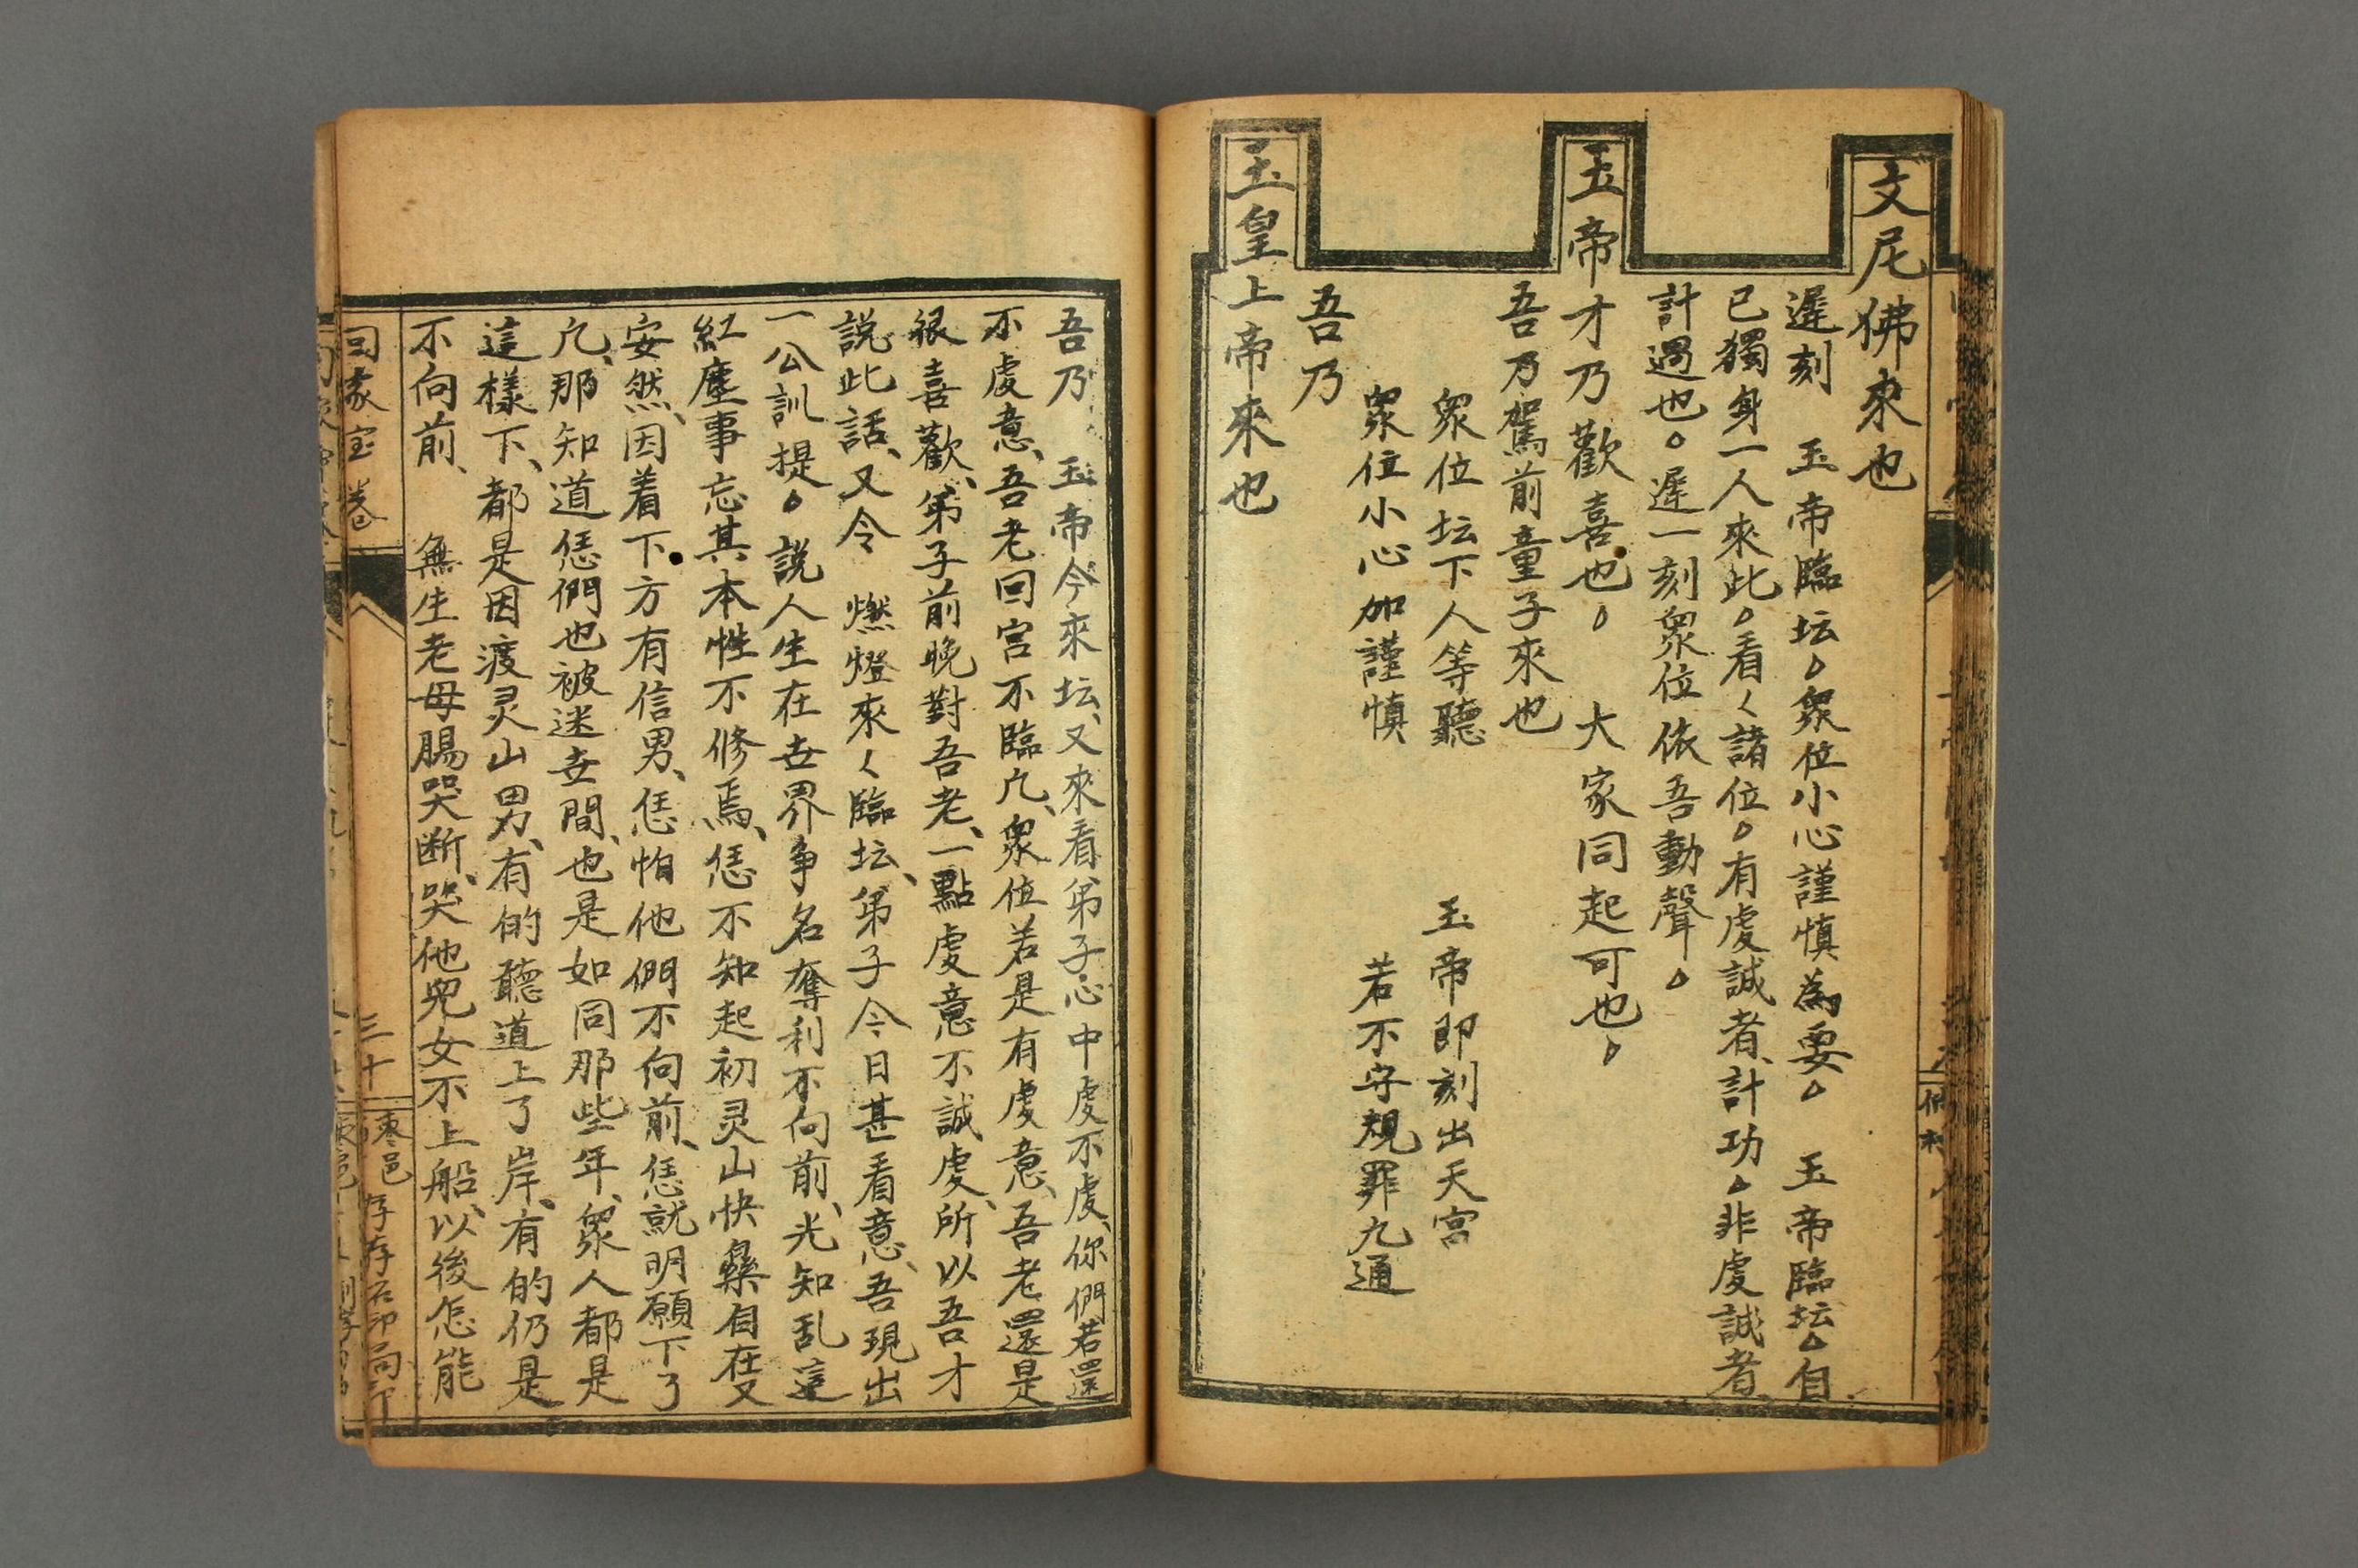 文尼佛來也
遲刻　玉帝臨坛。衆位小心謹慎為要。　玉帝臨坛。自
已獨身一人來此。看〻諸位。有虔誠者、計功。非虔誠者、
計過也。遲一刻衆位依吾動聲。
玉帝才乃歡喜也。　大家同起可也。
吾乃駕前童子來也
衆位坛下人等聽　玉帝即刻出天宮
衆位小心加謹慎　若不守規罪九通
吾乃
玉皇上帝來也
吾乃　玉帝今來坛、又來看弟子心中虔不虔、你們若還
不虔意、吾老回宮不臨凢、衆位若是有虔意、吾老還是
很喜歡、弟子前晚對吾老、一點虔意不誠虔、所以吾才
説此話、又令　燃燈來〻臨坛、弟子今日甚看意、吾現出
一公訓提。説人生在世界爭名奪利不向前、光知乱這
紅塵事忘其本性不修焉、恁不知起初灵山快樂自在又
安然、因着下方有信男、恁怕他們不向前、恁就明願下了
凢、那知道恁們也被迷世間、也是如同那些年、衆人都是
這樣下、都是因渡灵山男、有的聽道上了岸、有的仍是
不向前、　無生老母腸哭断、哭他兒女不上船、以後怎能
回家宝卷
三十
棗邑
存存石印局印